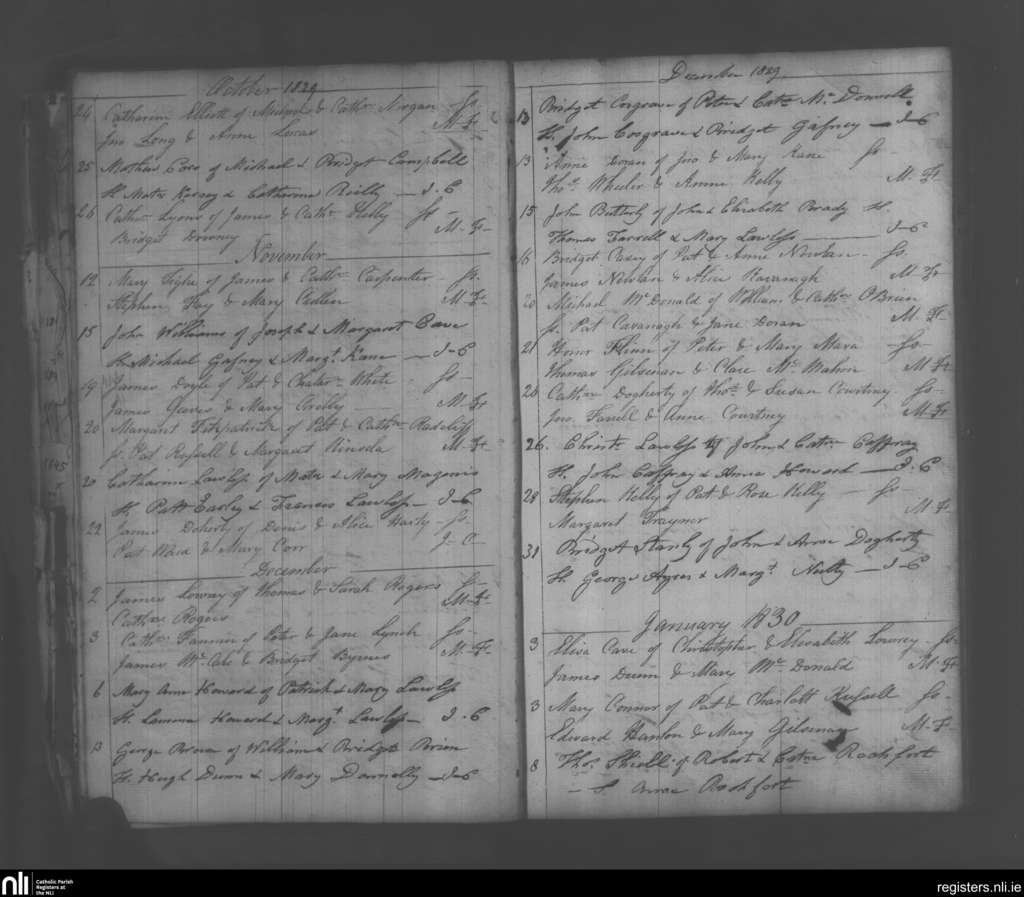 October 1829
24 Catharine Elliott of Michael & Cathne Morgan Ss.
Jno Long & Anne Lucas M. Fr
25 Mathew Coro of Michael & Bridget Campbell
St Mathw Kersey & Catharine Reilly — J. C
26 Cathne Lyons of James & Cathne Kelly Ss
Bridget Downey M. Fr
November
12 Mary Tighe of James & Cathne Carpenter Ss.
Stephen Fay & Mary Cullen M. Fr
15 John Williams of Joseph & Margaret Cave
St Michael Gafney & Margt Kane — J-C
19 James Doyle of Pat & Charlotte White Ss
James Geaves & Mary M. Fr
20 Margaret Fitzpatrick of Pat & Cathne Radcliff
Ss. Pat Russell & Margaret M. Fr
20 Catharine Lawless of Mathw & Mary
St Patt Earley & Frances Lawless — J-C
22 James Doherty of Denis & Alice Harty Ss.
Pat Ward & Mary Corr J- C
December
2 James Loway of Thomas & Sarah Rogers Ss
Cathne Rogers M. Fr
3 Cathne Fannin of Peter & Jane Lynch Ss
James McCabe & Bridget Byrnes M. Fr
6 Mary Ann Howard of Patrick & Mary Lawless
St Howard & Margt Lawless — J. C
13 George of William & Bridget Brien
St Hugh Dunn & Mary Donnelly — J-C
December 1829
13 Bridget Cosgrave of Peter & Catne Mc Donnell
St. John Cosgrave & Bridget Gafney — J-C
13 Anne Doran of Jno & Mary Kane Ss
Thos Wheeler & Annne Kelly M. Fr
15 John Butterly of John & Elizabeth Brady St.
Thomas Farrell & Mary Lawless — J-C
16 Bridget Casey of Pat & Anne Nowlan Ss.
James Nowlan & Alice Kavanagh M. Fr
20 Michael McDonald of William & Cathne O'Brien
Ss. Pat Cavanagh & Jane Doran M. Fr
21 Honor Flinn of Peter & Mary Mara Ss
Thomas Gilsenan & Clare Mc Mahon M. Fr
26 Cathne Dogherty of Thos & Susan Courtney Ss
Jno. Farrell & Anne Courtney M. Fr
26. Christr Lawless of John & Catne Caffray
St. John Caffray & Anna Howard — J. C
28 Stephen Kelly of Pat & Rose Kelly Ss
Margaret Traynor M. Fr
31 Bridget Stanly of John & Anne Dogherty
St. George Ayres & Margt Nulty — J-C
January 1830
3 Elisa Cave of Christopher & Elizabeth Lowrey Ss.
James Dunn & Mary McDonald M. Fr
3 Mary Connor of Pat & Charlott Russell Ss
Edward Hanlon & Mary Gilsenan M. F
8 Thos. Shiell of Robert & Catne Rochfort
— S. Anne Rochfort
1845
nli
Catholic Parish
Registers at
the NLI
registers.nli.ie